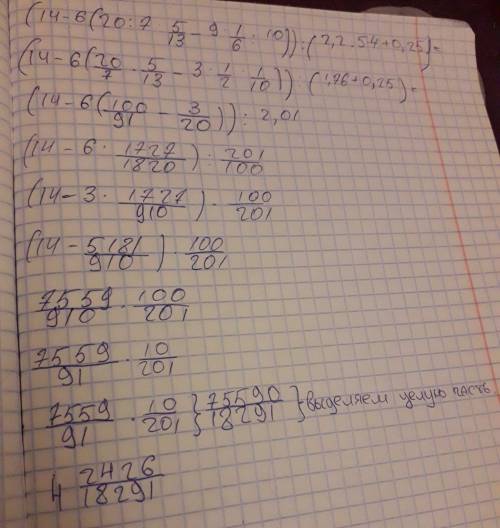 (14-6(20:7 5/13 - 9·1/6·10)):(2,2·54+0,25)=
(14-6(20/7·5/13 - 3·1/2·1/10)):(1,76+0,25)=
(14-6(100/91 - 3/20)):2,01
(14-6·1727/1820):201/100
(14-3·1727/910)·100/201
(14-5181/910)·100/201
7559/910·100/201
7559/91·10/201
7559/91·10/201}75590/18291}-выделяем целую часть
4 2426/18291